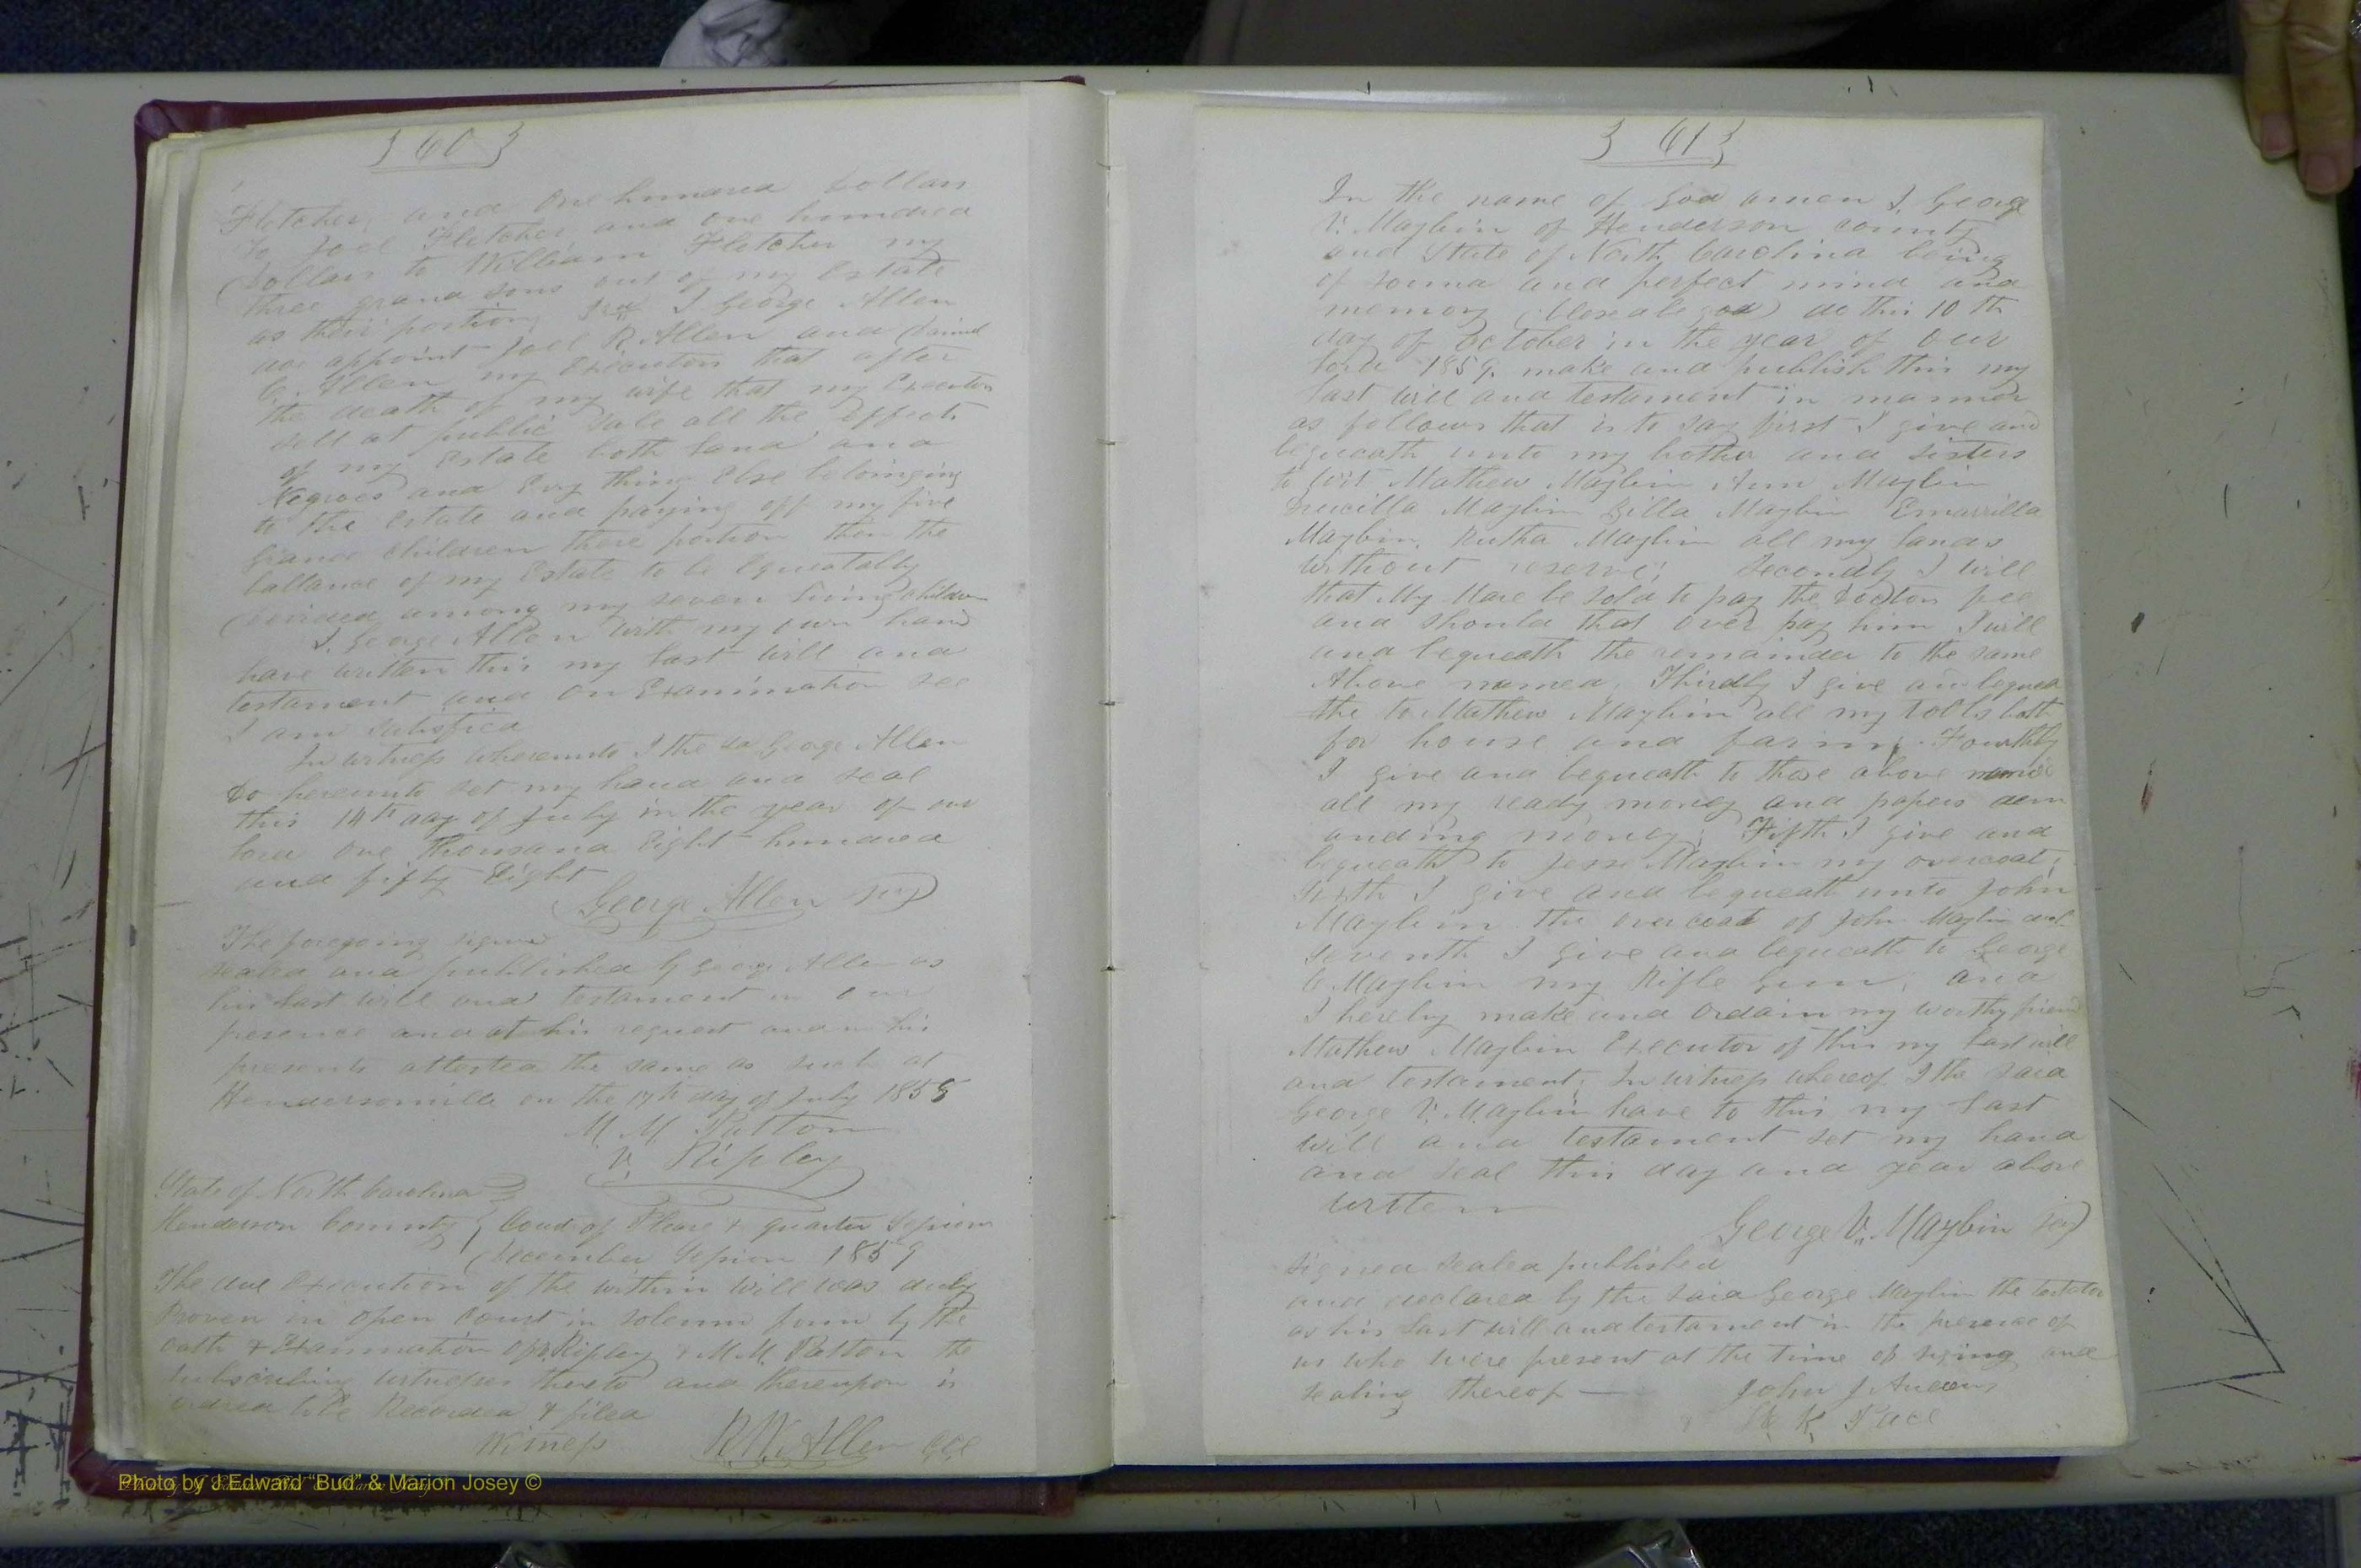 { 60 }
Fletcher, and One hundred Dollars
to Joel Fletcher and one hundred
Dollars to William Fletcher my
three grand sons out of my Estate
as their portion, I George Allen
do appoint Joel R Allen and
C. Allen my Executors that after
the death of my wife that my Executors
sell at public sale all the Effects
of my Estate both land and
Negroes and Evry thing Else belonging
to the Estate and paying off my five
Grand Children there portion then the
ballance of my Estate to be Equeatably
Devided among my seven living children
I, George Allen with my own hand
have written this my last will and
testament and on Examination see
I am satisfied
In witness whereunto I the sd George Allen
Do hereunto set my hand and seal
this 14th day of July in the year of our
lord One thousand Eight hundred
and fifty Eight
George Allen
The foregoing signed
sealed and published by George Allen as
his last will and testament in our
presence and at his request and in his
presents attested the same as such at
Hendersonville on the 17th day of July 1858
M M Patton
V. Ripley
State of North Carolina }
Henderson County } Court of Pleas & quarter Session
December Session 1859
The due Execution of the within will was duly
proven in open Court in solemn form by the
oath & Examination of V. Ripley & M.M. Patton the
subscribing witnesses thereto and thereupon is
ordred to be Recorded & filed
Witness R.W. Allen
{ 61 }
In the name of God amen I, George
V. Maybin of Henderson county
and State of North Carolina being
of sound and perfect mind and
memory (blessed be god) do this 10 th
day of October in the year of our
lord 1859. make and publish this my
last will and testament in manner
as follows that is to say first I give and
bequeath unto my bother and sisters
to wit Mathew Maybin Ann Maybin
Drucilla Maybin Gilla Maybin
Maybin, Rutha Maybin all my lands
without reserve; Secondly I will
that My Mare be sold to pay the Doctors fee
and should that over pay him I will
and bequeath the remainder to the same
Above named, Thirdly I give and bequea
the to Mathew Maybin all my tolls both
for house and farm; Fourthly
I give and bequeath to those above named
all my ready money and papers dem
anding money; Fifth I give and
bequeath to Jesse Maybin my overcoat;
Sixth I give and bequeath unto John
Maybin the over coat of John Maybin
Seventh I give and bequeath to George
C Maybin my Rifle Gun, and
I hereby make and Ordain my worthy friend
Mathew Maybin Executor of this my last will
and testament; In witness whereof I the said
George V. Maybin have to this my last
will and testament set my hand
and seal this day and year above
written
George V. Maybin
Signed sealed published
and declared by the said George Maybin the testator
as his last will and testament in the presence of
us who were present at the time of signing and
sealing thereof — John J
K Pace
Photo by J Edward “Bud” & Marion Josey ©